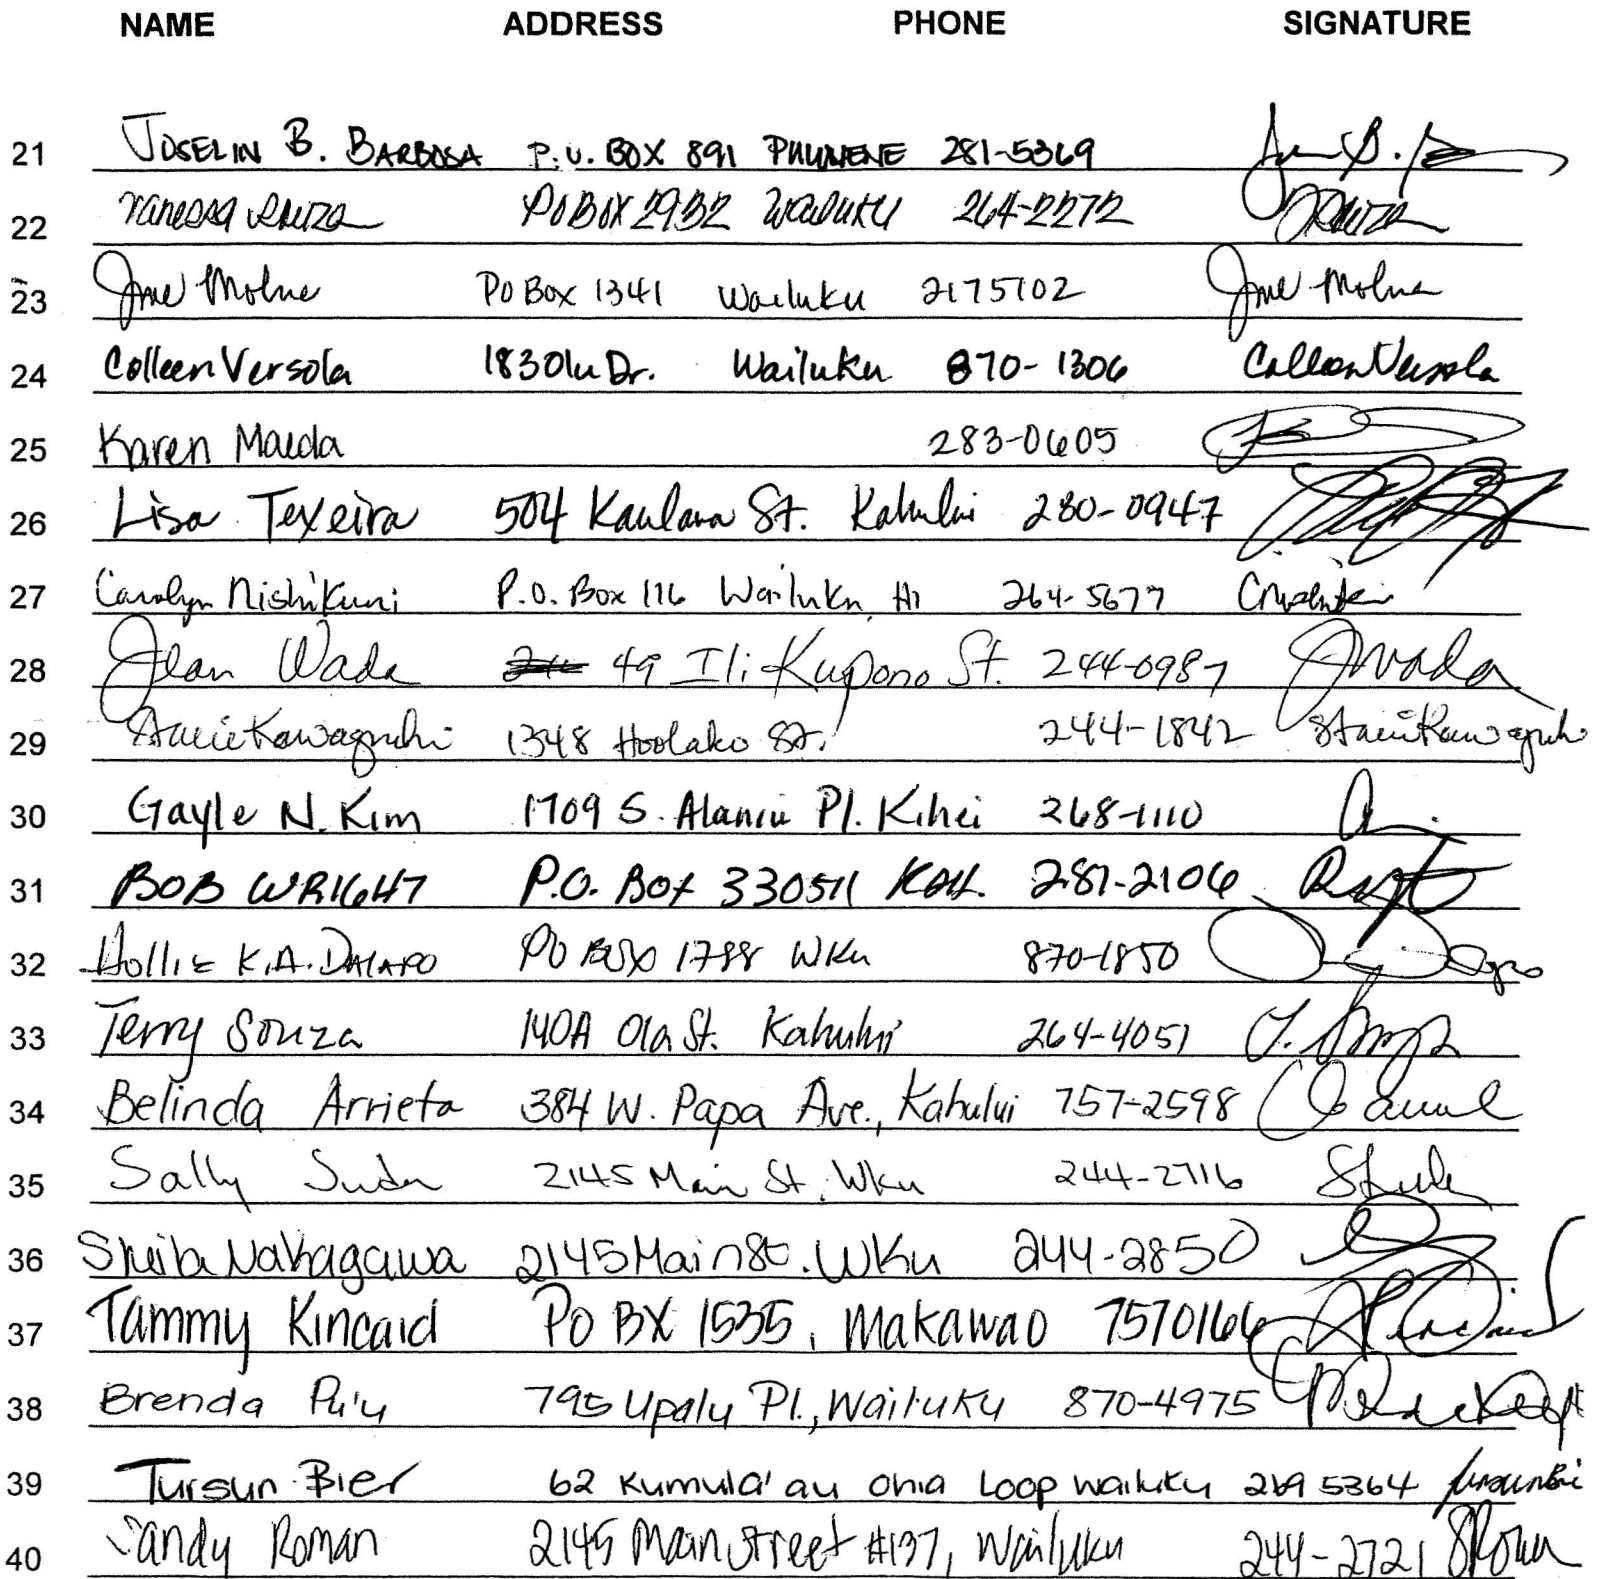 NAME ADDRESS PHONE SIGNATURE
21 JOSELIN B. BARBOSA P.O. BOX 891 PUUNENE 281-5369
22 Vanessa Souza PO BOX 2932 Wailuku 264-2272
23 PO Box 1341 Wailuku 2175702
24 Colleen Versola 1830 Iu Dr. Wailuku 870-1306 Colleen Versola
25 Karen Maeda 283-0605
26 Lisa Texeira 504 Kaulana St. Kahului 280-0947
27 Carolyn Nishikuni P.O. Box 116 Wailuku, HI 264-5677
28 Jean Wada 49 Ili Kupono St. 244-0987 JWada
29 Stacie Kawaguchi 1348 Hoolako St. 244-1842 Stacie Kawaguchi
30 Gayle N. Kim 1709 S. Alaniu Pl. Kihei 268-1110
31 BOB WRIGHT P.O. Box 330511 KAH. 281-2106
32 Hollie K.A. DALAPO PO BOX 1788 WKu 870-1850
33 Terry Souza 140A Ola St. Kahului 264-4051
34 Belinda Arrieta 384 W. Papa Ave., Kahului 757-2598
35 Sally 2145 Main St. Wku 244-2716
36 Sheila Nakagawa 2145 Main St. WKu 244-2850
37 Tammy Kincaid PO BX 1535, Makawao 7570166
38 Brenda Pu'u 795 Upalu Pl., Wailuku 870-4975
39 Tursun Bier 62 Kumula'au Ohia Loop Wailuku 269 5364
40 Sandy Roman 2145 Main Street #137, Wailuku 244-2721 SRoman